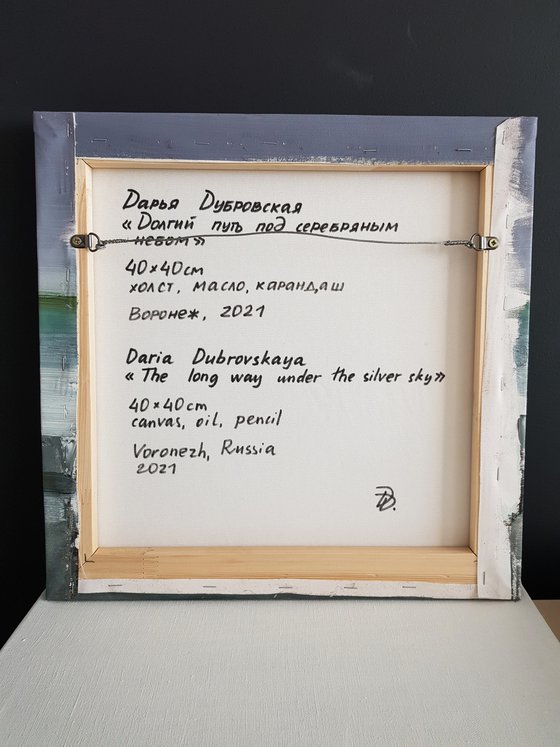 Дарья Дубровская
«Долгий путь под серебряным
небом»
40×40см
холст, масло, карандаш
Воронеж, 2021
Daria Dubrovskaya
«The long way under the silver sky»
40×40cm
canvas, oil, pencil
Voronezh, Russia
2021